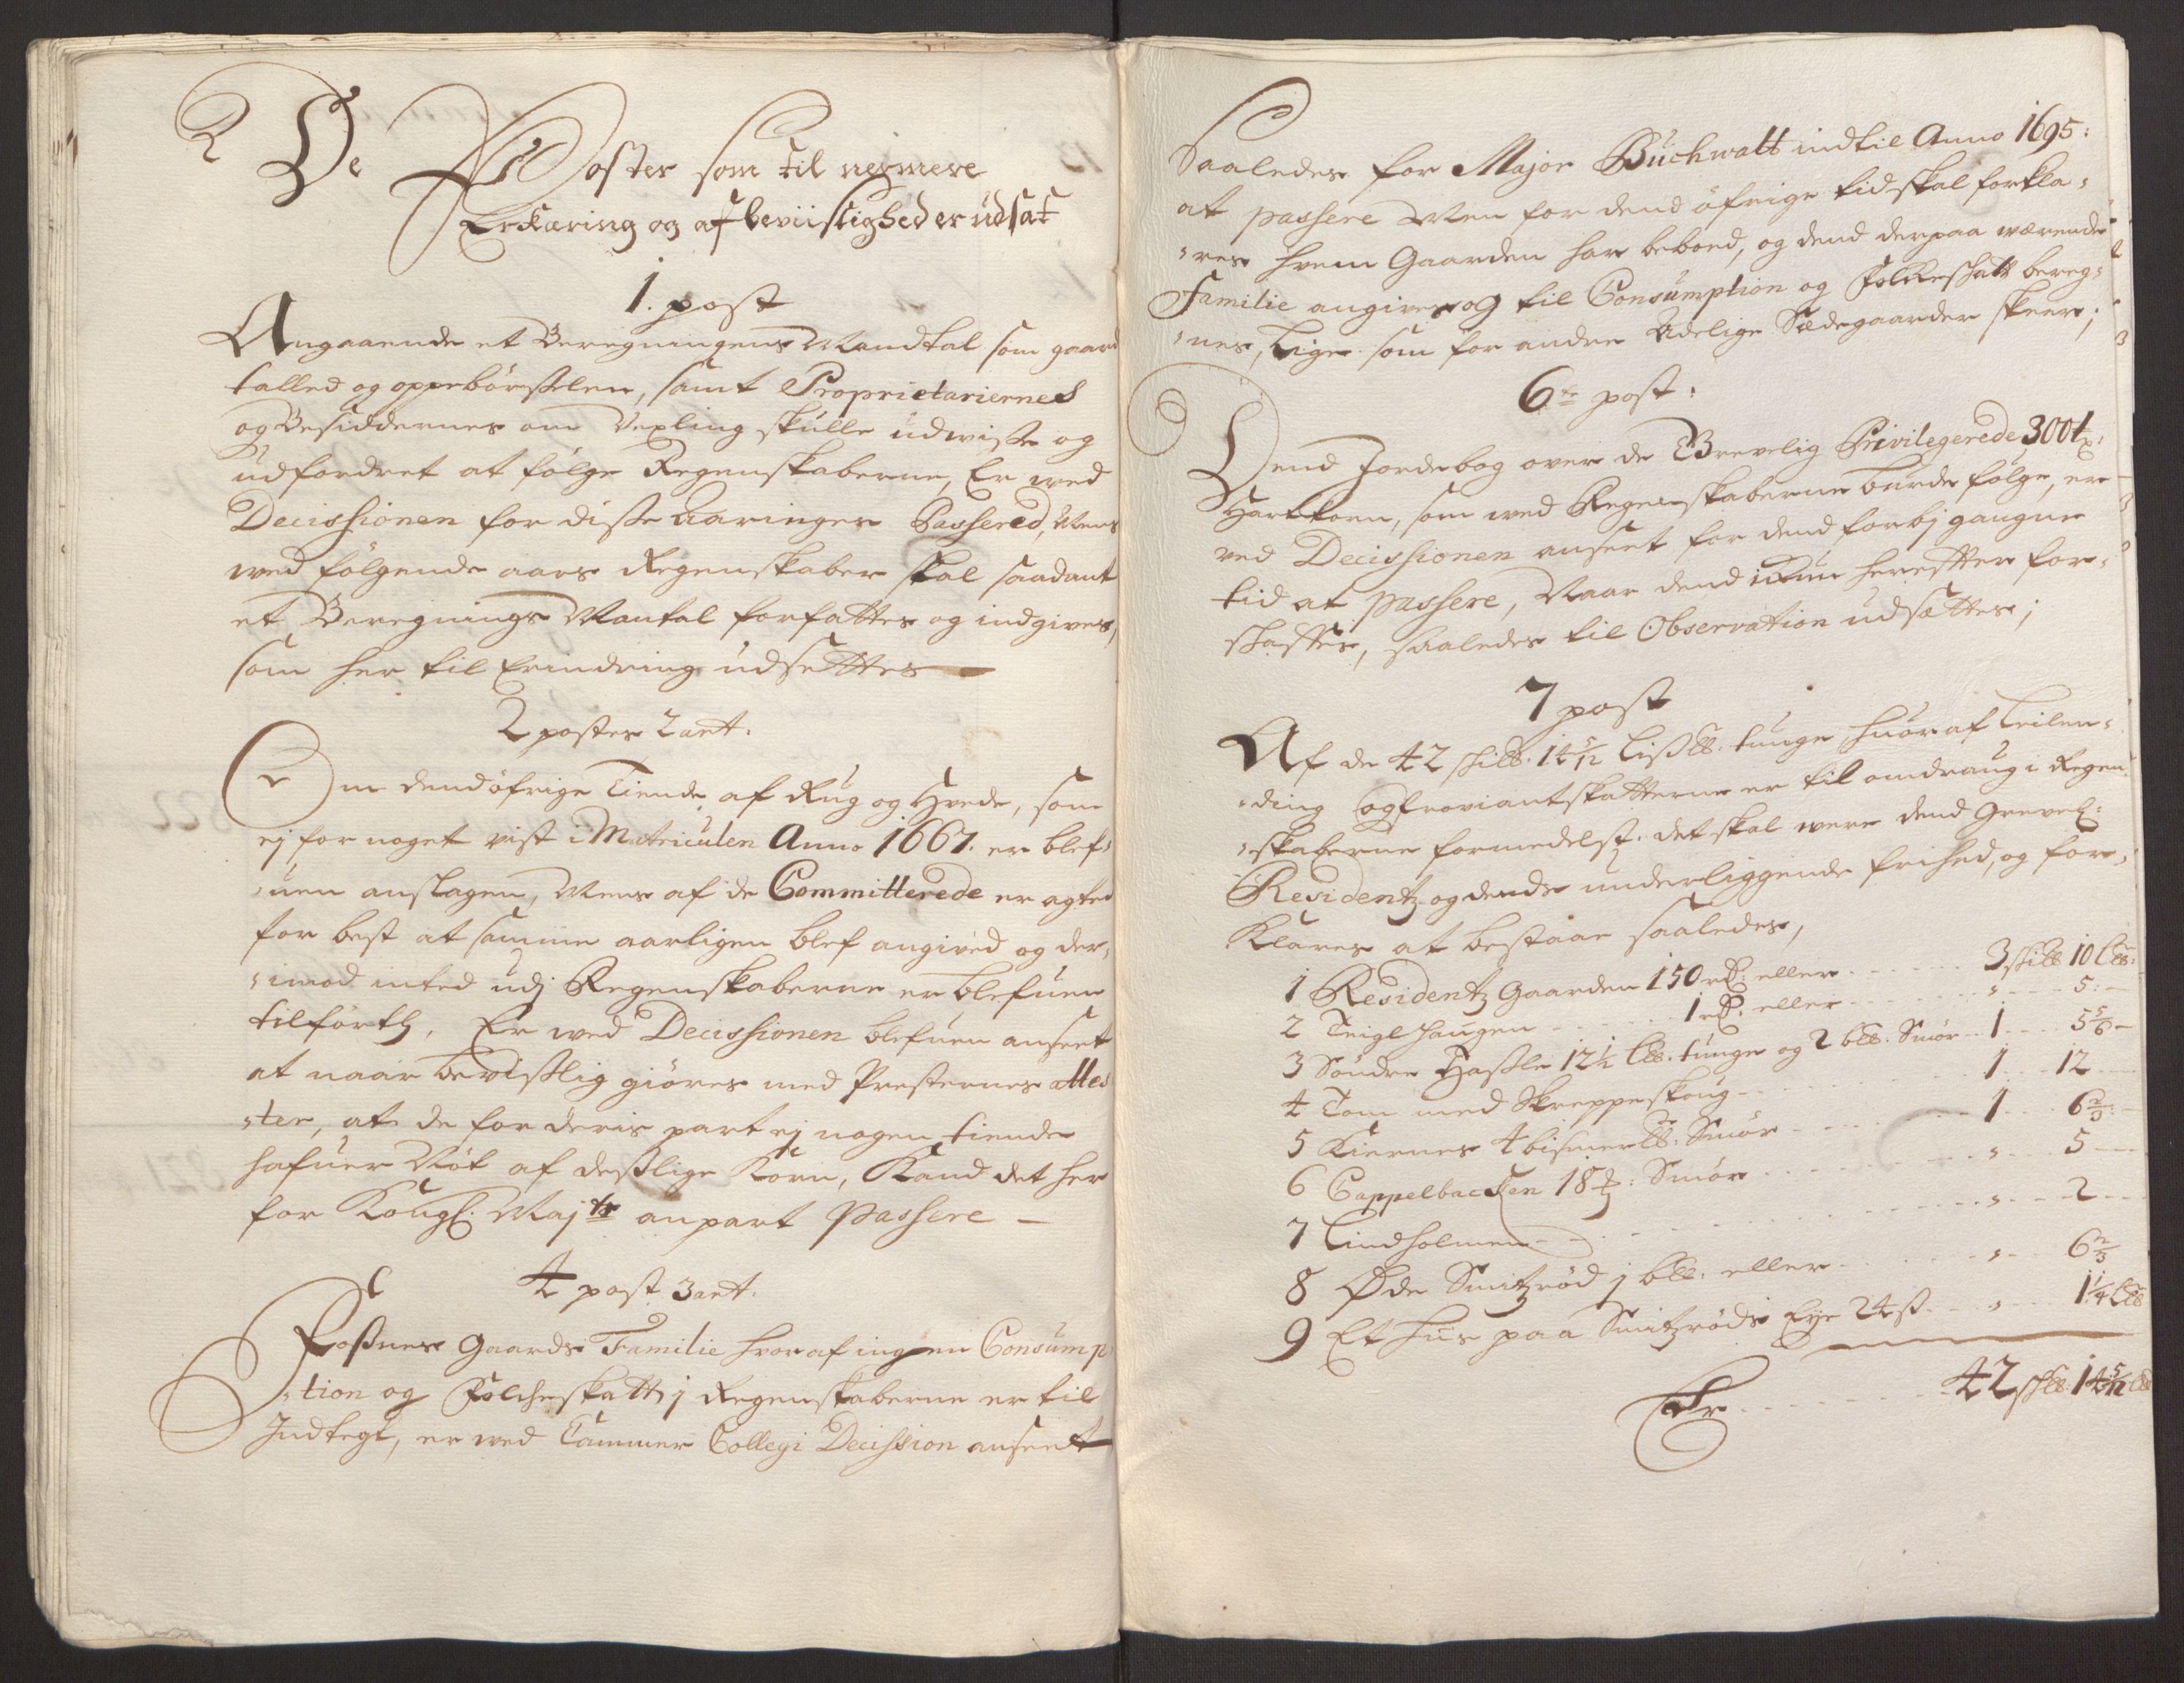 De Poster som til nermere
Erklæring og afbeviislighed er udsat
1. post
Angaaende et Beregnings Mandtal som gaard
tallet og oppebørselen, samt Proprietariernes
og Besiddernes om Vexling skulle udwisse og
udfordret at følge Regenskaberne, Er wed
Decissionen for disse aaringer Passered, Mens
wed følgende aars Regenskaber skal saadant
et Beregnings Mantal forfattes og indgives,
som her til Erindring udsettes
2 postes 2 ant.
Om dend øfrige Tiende af Rug og Hvede, som
ej for noget vist i Matriculen Anno 1667. er blef-
uen anslagen, Mens af de Committerede er agted
for best at samme aarligen blef angived og der-
imod inted udj Regenskaberne er blefuen
tilførth, Er wed Decissionen blefuen anseet
at naar bevislig giøres med Presternes atte-
ster, at de for deris part ej nogen tiende
hafuer Nøt af deslige Korn, Kand det her
for Kongl: Majts anpart Passere
4 post 3 ant.
Fossnes Gaards Familie hvoraf ingen Consump-
tion og Folcheskatt j Regenskaberne er til
Indtegt, er wed Cammer Collegi Decission anseet
Saaledes for Major Buchwalt indtil Anno 1695:
at passere Men for dend øfrige tid skal forkla-
res hvem Gaarden har beboed, og dend derpaa værende
Familie angives og til Consumption og Folkeschatt bereg-
nes, Lige som for andre Adelige Sædegaarder skeer;
6te post:
Dend Jordebog over de Grevelig Privilegerede 300 t:
Hartkorn, som wed Regenskaberne burde følge, er
ved Decissionen anseet for dend forbj gangne
tid at passere, Naar dend ikun herefter for-
skaffes, saaledes til Observation udsættes;
7 post
Af de 42 skilb. 14 5/12 Lissb. tunge, huoraf Leilen-
ding og Proviantskatterne er til omdraug i Regen-
skaberne formedelst. det skal were dend Grevel:
Residentz og dends underliggende frihed, og for-
klares at bestaar saaledes,
1 Residentz Gaarden 150 rd: eller 3 skilb 10 Lb:
2 Teiglhaugen 1 rd: eller " 5:
3 Søndre Hasle 12 1/2 Lb. tunge og 2 bb. Smør 1 5 5/6
4 Tom med Skreppeskoug 1 12
5 Kiernes 4 bismerb: Smør 1 6 2/3
6 Cappelbacken 18 : Smør " 5
7 Lindholmen " 2
8 Øde Smitzrød j bb: eller " 6 2/3
9 Et Huus paa Smitzrøds Eye 24 ß " 1 1/4 Lb
Er 42 skb: 14 5/12 Lb